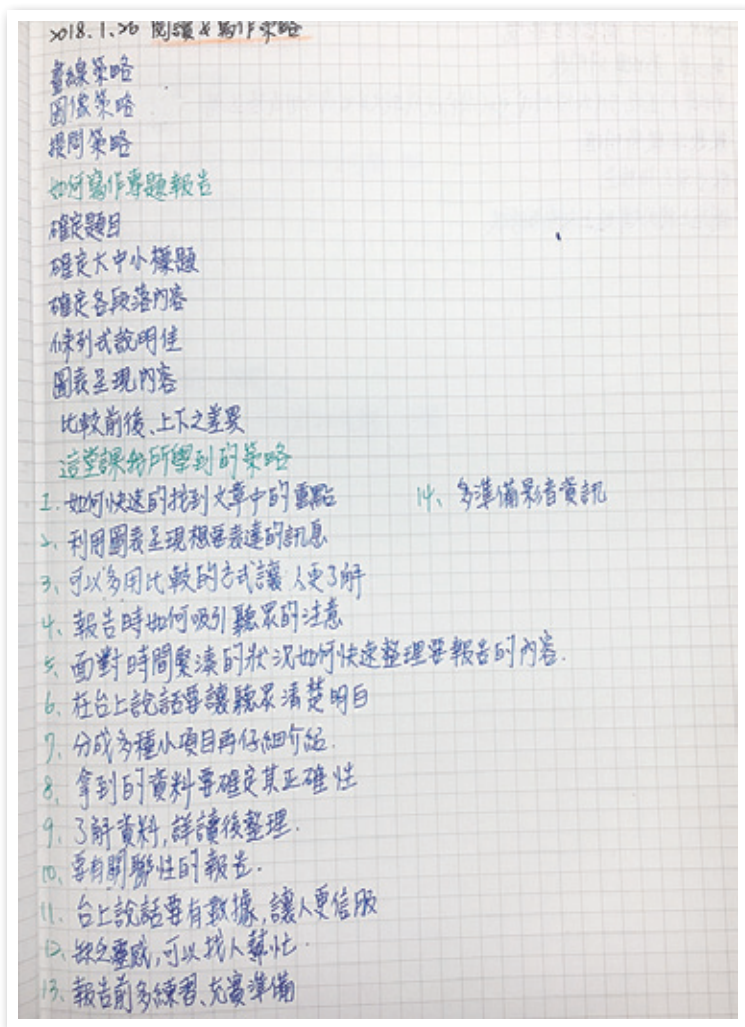 2018.1.26 閱讀&寫作策略
畫線策略
圖像策略
提問策略
如何寫作專題報告
確定題目
確定大中小標題
確定各段落內容
條列式說明佳
圖表呈現內容
比較前後、上下之差異
這堂課我所學到的策略
1. 如何快速的找到文章中的重點
14、多準備影音資訊
2、利用圖表呈現想要表達的訊息
3、可以多用比較的方式讓人更了解
4、報告時如何吸引聽眾的注意
5、面對時間緊湊的狀況如何快速整理要報告的內容.
6、在台上說話要讓聽眾清楚明白
7、分成多種小項目再仔細介紹.
8、拿到的資料要確定其正確性
9、了解資料,詳讀後整理.
10、要有關聯性的報告.
11、台上說話要有數據,讓人更信服
12、缺乏靈感,可以找人幫忙.
13、報告前多練習、充實準備